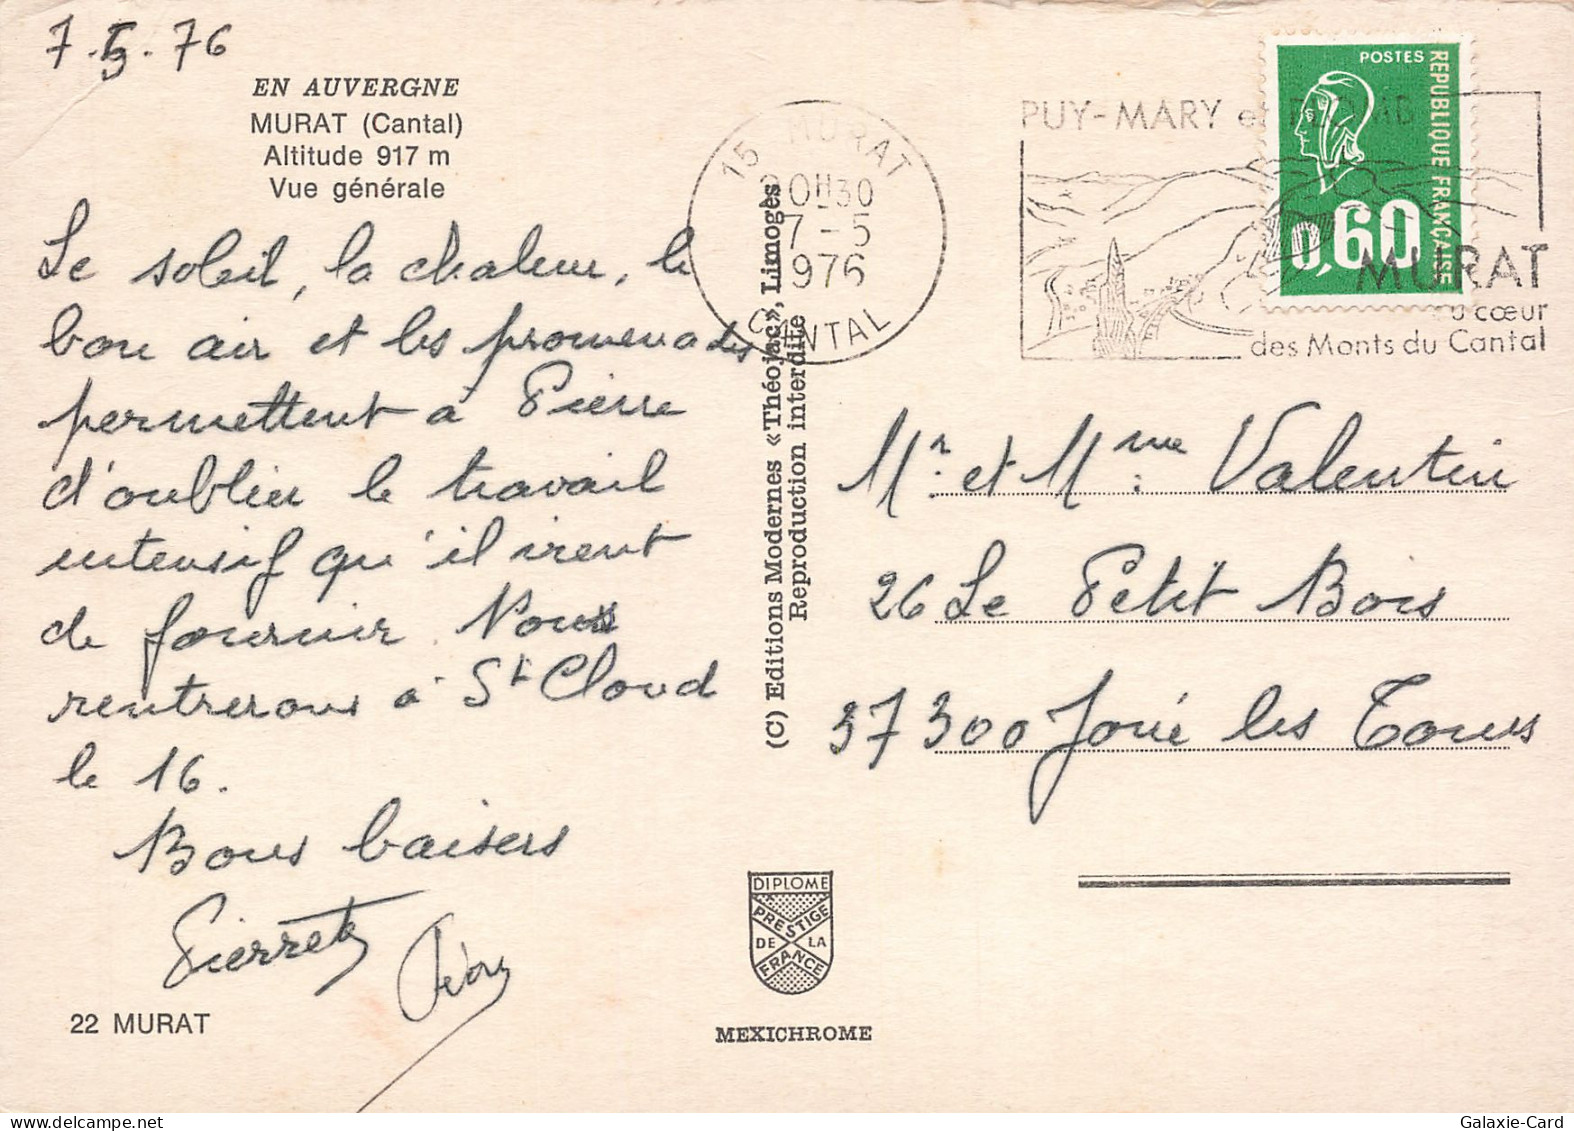 7.5.76
EN AUVERGNE
MURAT (Cantal)
Altitude 917 m
Vue générale
Le soleil, la chaleur, le
bon air et les promenades
permettent à Pierre
d'oublier le travail
intensif qu'il vient
de fournir. Nous
rentrerons à St Cloud
le 16.
Bons baisers
Pierrette
22 MURAT
(C) Editions Modernes «Théojac», Limoges
Reproduction interdite
15 MURAT
20H30
7-5
1976
CANTAL
PUY-MARY et PLOMB
MURAT
au cœur
des Monts du Cantal
POSTES
REPUBLIQUE FRANÇAISE
0,60
Mr. et Mme. Valentin
26 Le Petit Bois
37300 Joué les Tours
DIPLOME
PRESTIGE
DE LA
FRANCE
MEXICHROME
Galaxie-Card